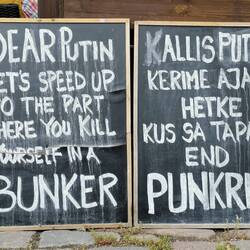 DEAR PUTIN
LET'S SPEED UP
TO THE PART
WHERE YOU KILL
YOURSELF IN A
BUNKER
KALLIS PUT
KERIME AJA
HETKE
KUS SA TAPA
END
PUNKRI